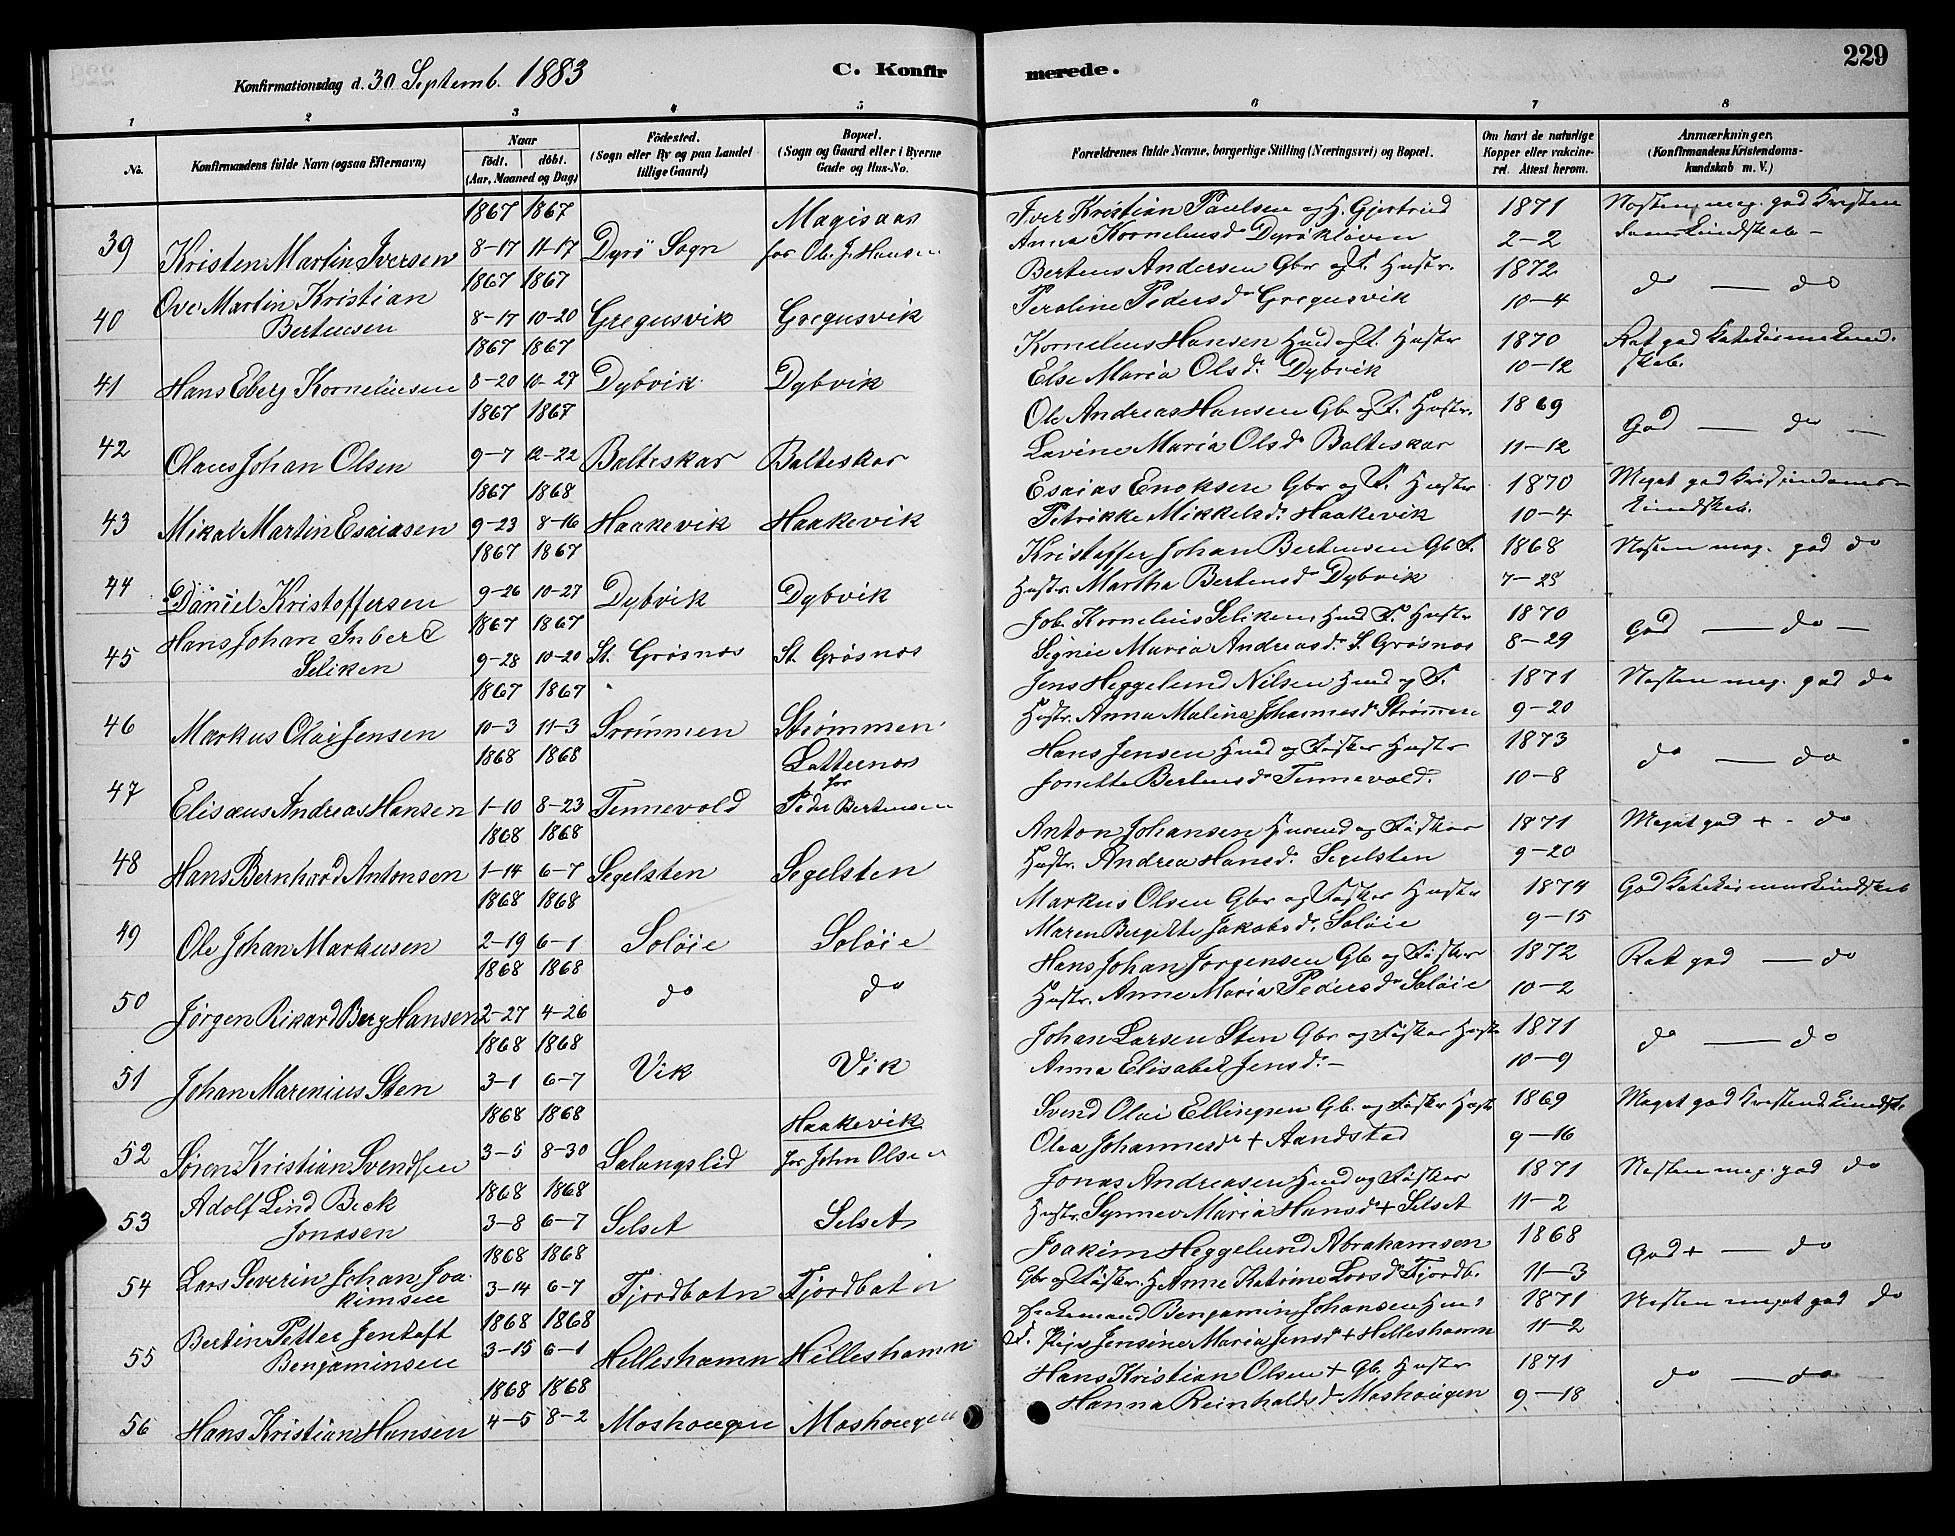 Konfirmationsdag d. 30 Septemb. 1883
C. Konfirmerede.
229
1 2 3 4 5 6 7 8
No.
Konfirmandens fulde Navn (ogsaa Efternavn)
Naar
födt. döbt.
(Aar, Maaned og Dag)
Födested.
(Sogn eller By og paa Landet
tillige Gaard)
Bopæl.
(Sogn og Gaard eller i Byerne
Gade og Hus-No.
Forældrenes fulde Navne, borgerlige Stilling (Næringsvei) og Bopæl.
Om havt de naturlige
Kopper eller vakcine-
ret. Attest herom.
Anmærkninger.
(Konfirmandens Kristendoms-
kundskab m. V.)
1867 1867 Magisaas Iver Kristian Paulsen og H. Gjertrud 1871 Nesten meg. god Kristen
39 Kristen Martin Iversen 8-17 11-17 Dyrö Sogn for Ol. J. Hansen Anna Korneliusd Dyröklöven 2-2 domskundskab
1867 1867 Berteus Andersen Gbr og F. Hustr. 1872
40 Ove Martin Kristian Bertensen 8-17 10-20 Gregusvik Gregusvik Peroline Pedersd Gregusvik 10-4 do — do
1867 1867 Kornelius Hansen Husd og F. Hustr 1870 Ret god Katekismekund-
41 Hans Eberg Korneliusen 8-20 10-27 Dybvik Dybvik Else Maria Olsd. Dybvik 10-12 skab.
1867 1867 Ole Andreas Hansen Gb. og F. Hustr. 1869
42 Olaus Johan Olsen 9-7 12-22 Balteskar Balteskar Lavine Maria Olsd Balteskar 11-12 God — do —
1867 1868 Esaias Enoksen Gbr og F. Hustr 1870 Meget god Kristendoms-
43 Mikal Martin Esaiasen 9-23 8-16 Haakevik Haakevik Petrikke Mikkelsd. Haakevik 10-4 kundskab.
1867 1867 Kristoffer Johan Bertensen Gb F. 1868 Nesten meg. god do
44 Daniel Kristoffersen 9-26 10-27 Dybvik Dybvik Hustr. Martha Bertensd Dybvik 7-28
1867 1867 Job. Kornelius Seliken, Husd F. Hustr 1870
45 Hans Johan Inbert Seliken 9-28 10-20 St. Grösnes St. Grösnes Signie Maria Andreasd. S. Grösnes 8-29 God — do —
1867 1867 Jens Heggelund Nilsen Husd og F. 1871 Nesten meg. god do
46 Markus Olai Jensen 10-3 11-3 Srömmen Strömmen Hustr. Anna Malina Johannesd Strömmen 9-20
1868 1868 Latternes Hans Jensen Husd og Fisker Hustr 1873
47 Elisæus Andreas Hansen 1-10 8-23 Tennevold for Peder Bertensen Jonette Bertensd Tennevold. 10-8 do — do
1868 1868 Anton Johansen Husmd og Fisker 1871 Meget god + - do
48 Hans Bernhard Antonsen 1-14 6-7 Segelsten Segelsten Hustr. Andrea Hansd. Segelsten 9-20
1868 1868 Markus Olsen Gbr og Fisker Hustr 1874 God Katekismuskundskab
49 Ole Johan Markusen 2-19 6-1 Solöie Solöie Maren Bergitte Jakobsd. Solöie 9-15
1868 1868 Hans Johan Jorgensen Gb og Fisker 1872 Ret god — do
50 Jörgen Rikard Berg Hansen 2-27 4-26 do do Hustr. Anne Maria Pedersd Solöie 10-2
1868 1868 Johan Larsen Sten Gbr og Fisker Hustr 1871
51 Johan Marenius Sten 3-1 6-7 Vik Vik Anna Elisabet Jensd. - 10-9 do — do
1868 1868 Haakevik Svend Olai Ellingsen Gb. og Fisker Hustr 1869 Meget god Kristendskundsk.
52 Sören Kristian Svendsen 3-5 8-30 Salangslid for John Olsen Olea Johannesd + Aandstad 9-16
1868 1868 Jonas Andreasen Husd og Fisker 1871 Nesten meg. god do
53 Adolf Lind Beck Jonasen 3-8 6-7 Selset Selset Hustr. Synnev Maria Hansd + Selset 11-2
1868 1868 Joakim Heggelund Abrahamsen 1868
54 Lars Severin Johan Joakimsen 3-14 6-7 Fjordbotn Fjordbotn Gbr og Fisker. H. Anne Katrine Larsd Fjordb. 11-3 God + — do
1868 1868 Enkemand Benjamin Johansen Husd 1871 Nesten meget god do
55 Bertin Petter Jentoft Benjaminsen 3-15 6-1 Helleshamn Helleshamn Jensine Maria Jensd + Helleshamn 11-2
1868 1868 Hans Kristian Olsen + Gb. Hustr 1871
56 Hans Kristian Hansen 4-5 8-2 Moshougen Moshougen Hanna Reinholdtsd Moshougen 9-18 do — do